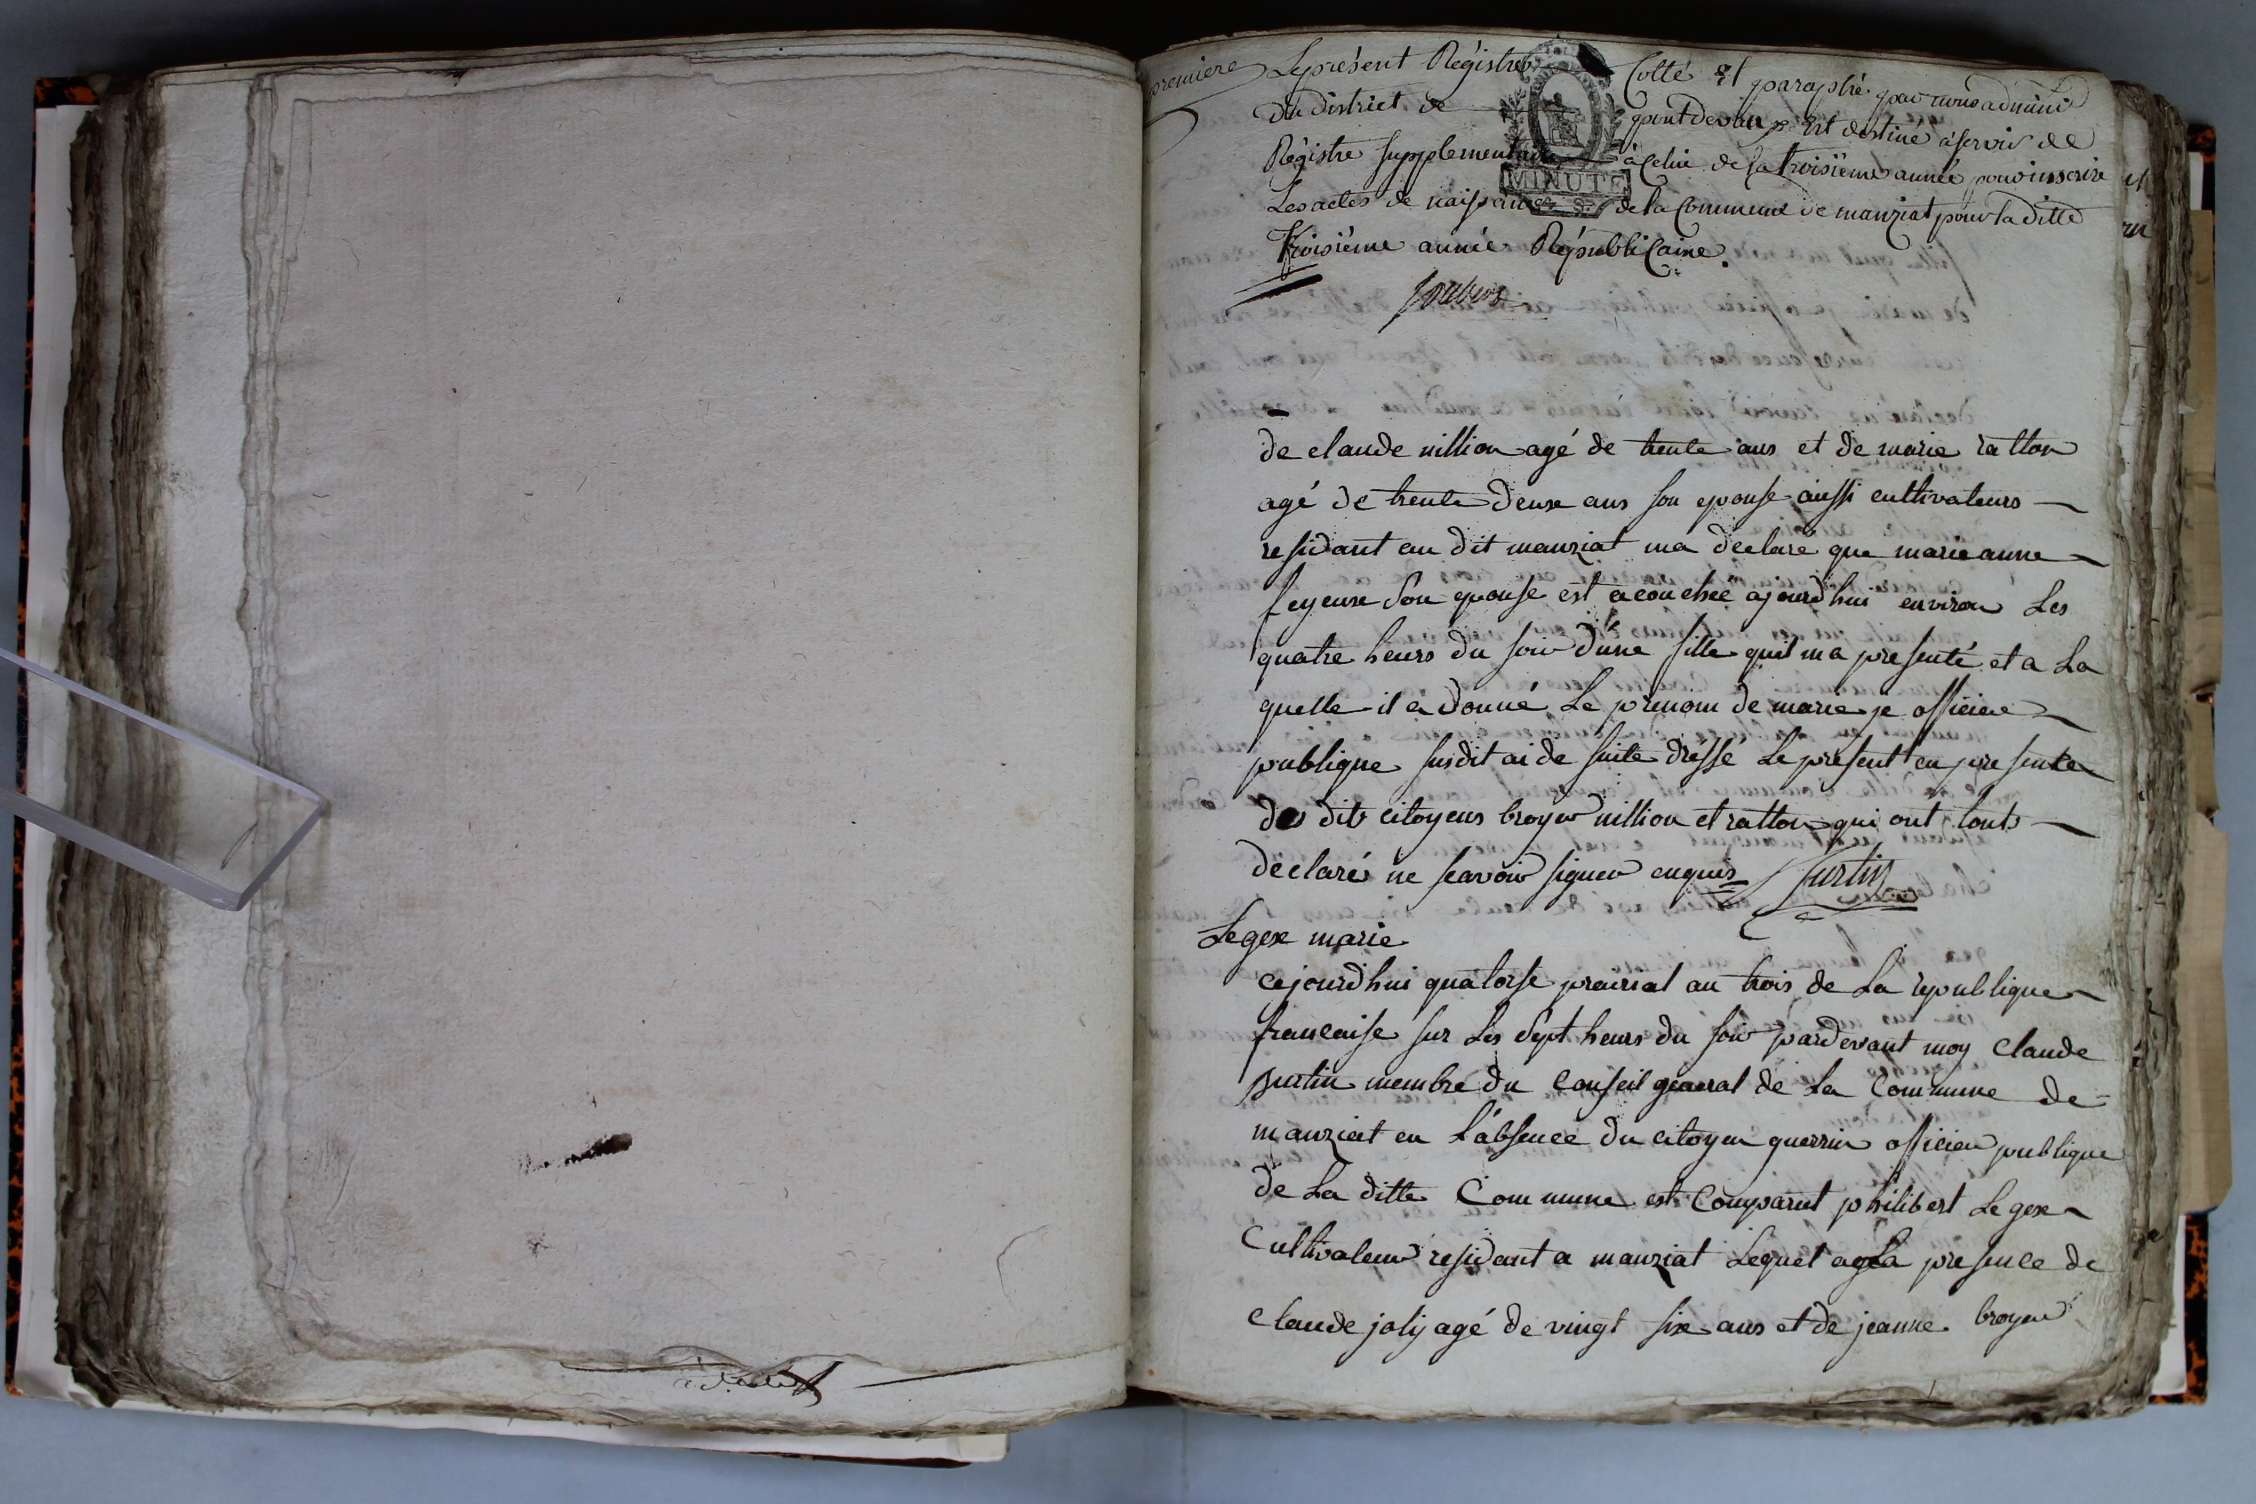 première
Le présent Régistre Cotté et paraphé par nous admini
du district de pontdevaux Est destiné à servir de
Régistre supplementaire à celui de la troisième année pour inscrire
Les actes de naissance de la Commune de manziat pour la ditte
troisième année Républicaine.
MINUTE
de claude nillion agé de trente ans et de marie ratton
agé de trente deux ans son epouse aussi cultivateurs
residant au dit manziat ma declaré que marie anne
feyeux son epouse est acouchée ajourdhui environ Les
quatre heurs du soir d'une fille quil ma presenté et a La
quelle il a donné Le prenom de marie je officier
publique susdit ai de suite dréssé Le present en presence
des dits citoyens broyer nillion et ratton qui ont touts
declaré ne scavoir signer enquis Surtin
Legex marie
cejourdhui quatorse prairial an trois de La republique
francaise sur Les sept heurs du soir pardevant moy claude
surtin membre du conseil general de La commune de
manziat en L'absence du citoyen guerrin officier publique
de La ditte Commune est Comparut philibert Legex
Cultivateur residant a manziat Lequel a La presence de
claude joly agé de vingt six ans et de jeanne broyer